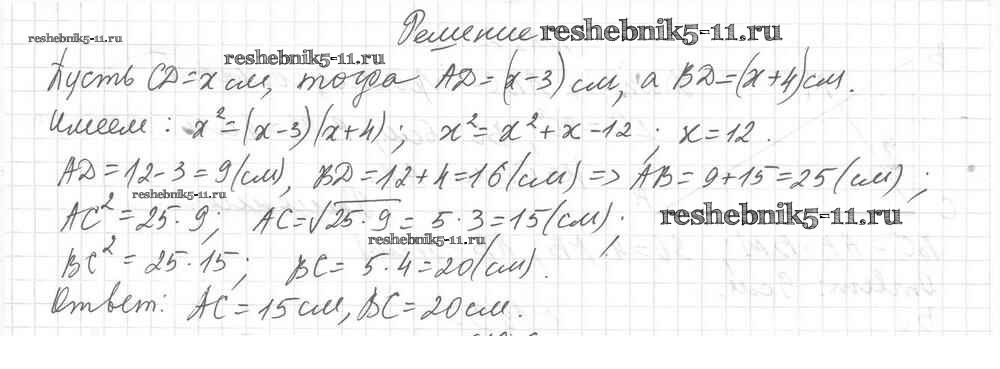 Решение reshebnik5-11.ru
reshebnik5-11.ru
reshebnik5-11.ru
Пусть CD=x см, тогда AD=(x-3) см, а BD=(x+4) см.
Имеем: x²=(x-3)(x+4); x²=x²+x-12; x=12.
AD=12-3=9(см), BD=12+4=16(см) => AB=9+15=25(см);
reshebnik5-11.ru
AC²=25·9; AC=√25·9=5·3=15(см); reshebnik5-11.ru
reshebnik5-11.ru
BC²=25·15; BC=5·4=20(см).
Ответ: AC=15см, BC=20см.